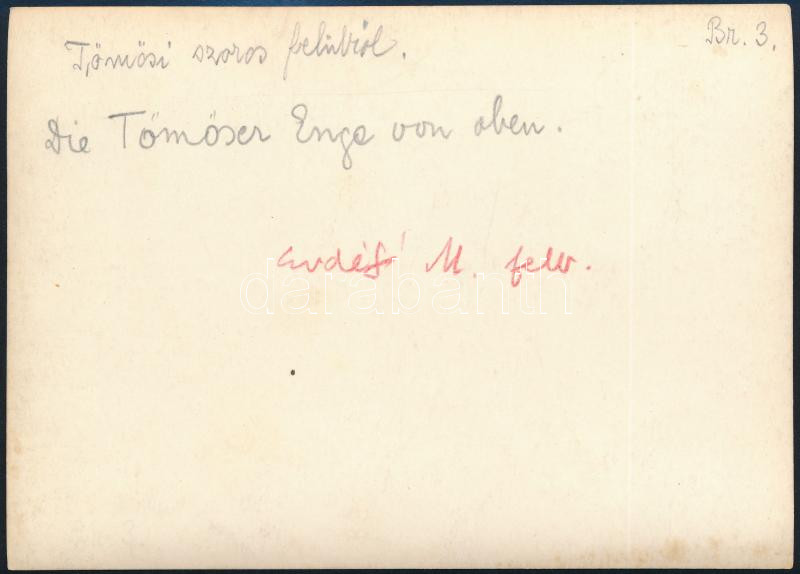 Br. 3.
Tömösi szoros felülről.
Die Tömöser Enge von oben.
Erdélyi M. felv.
darabanth